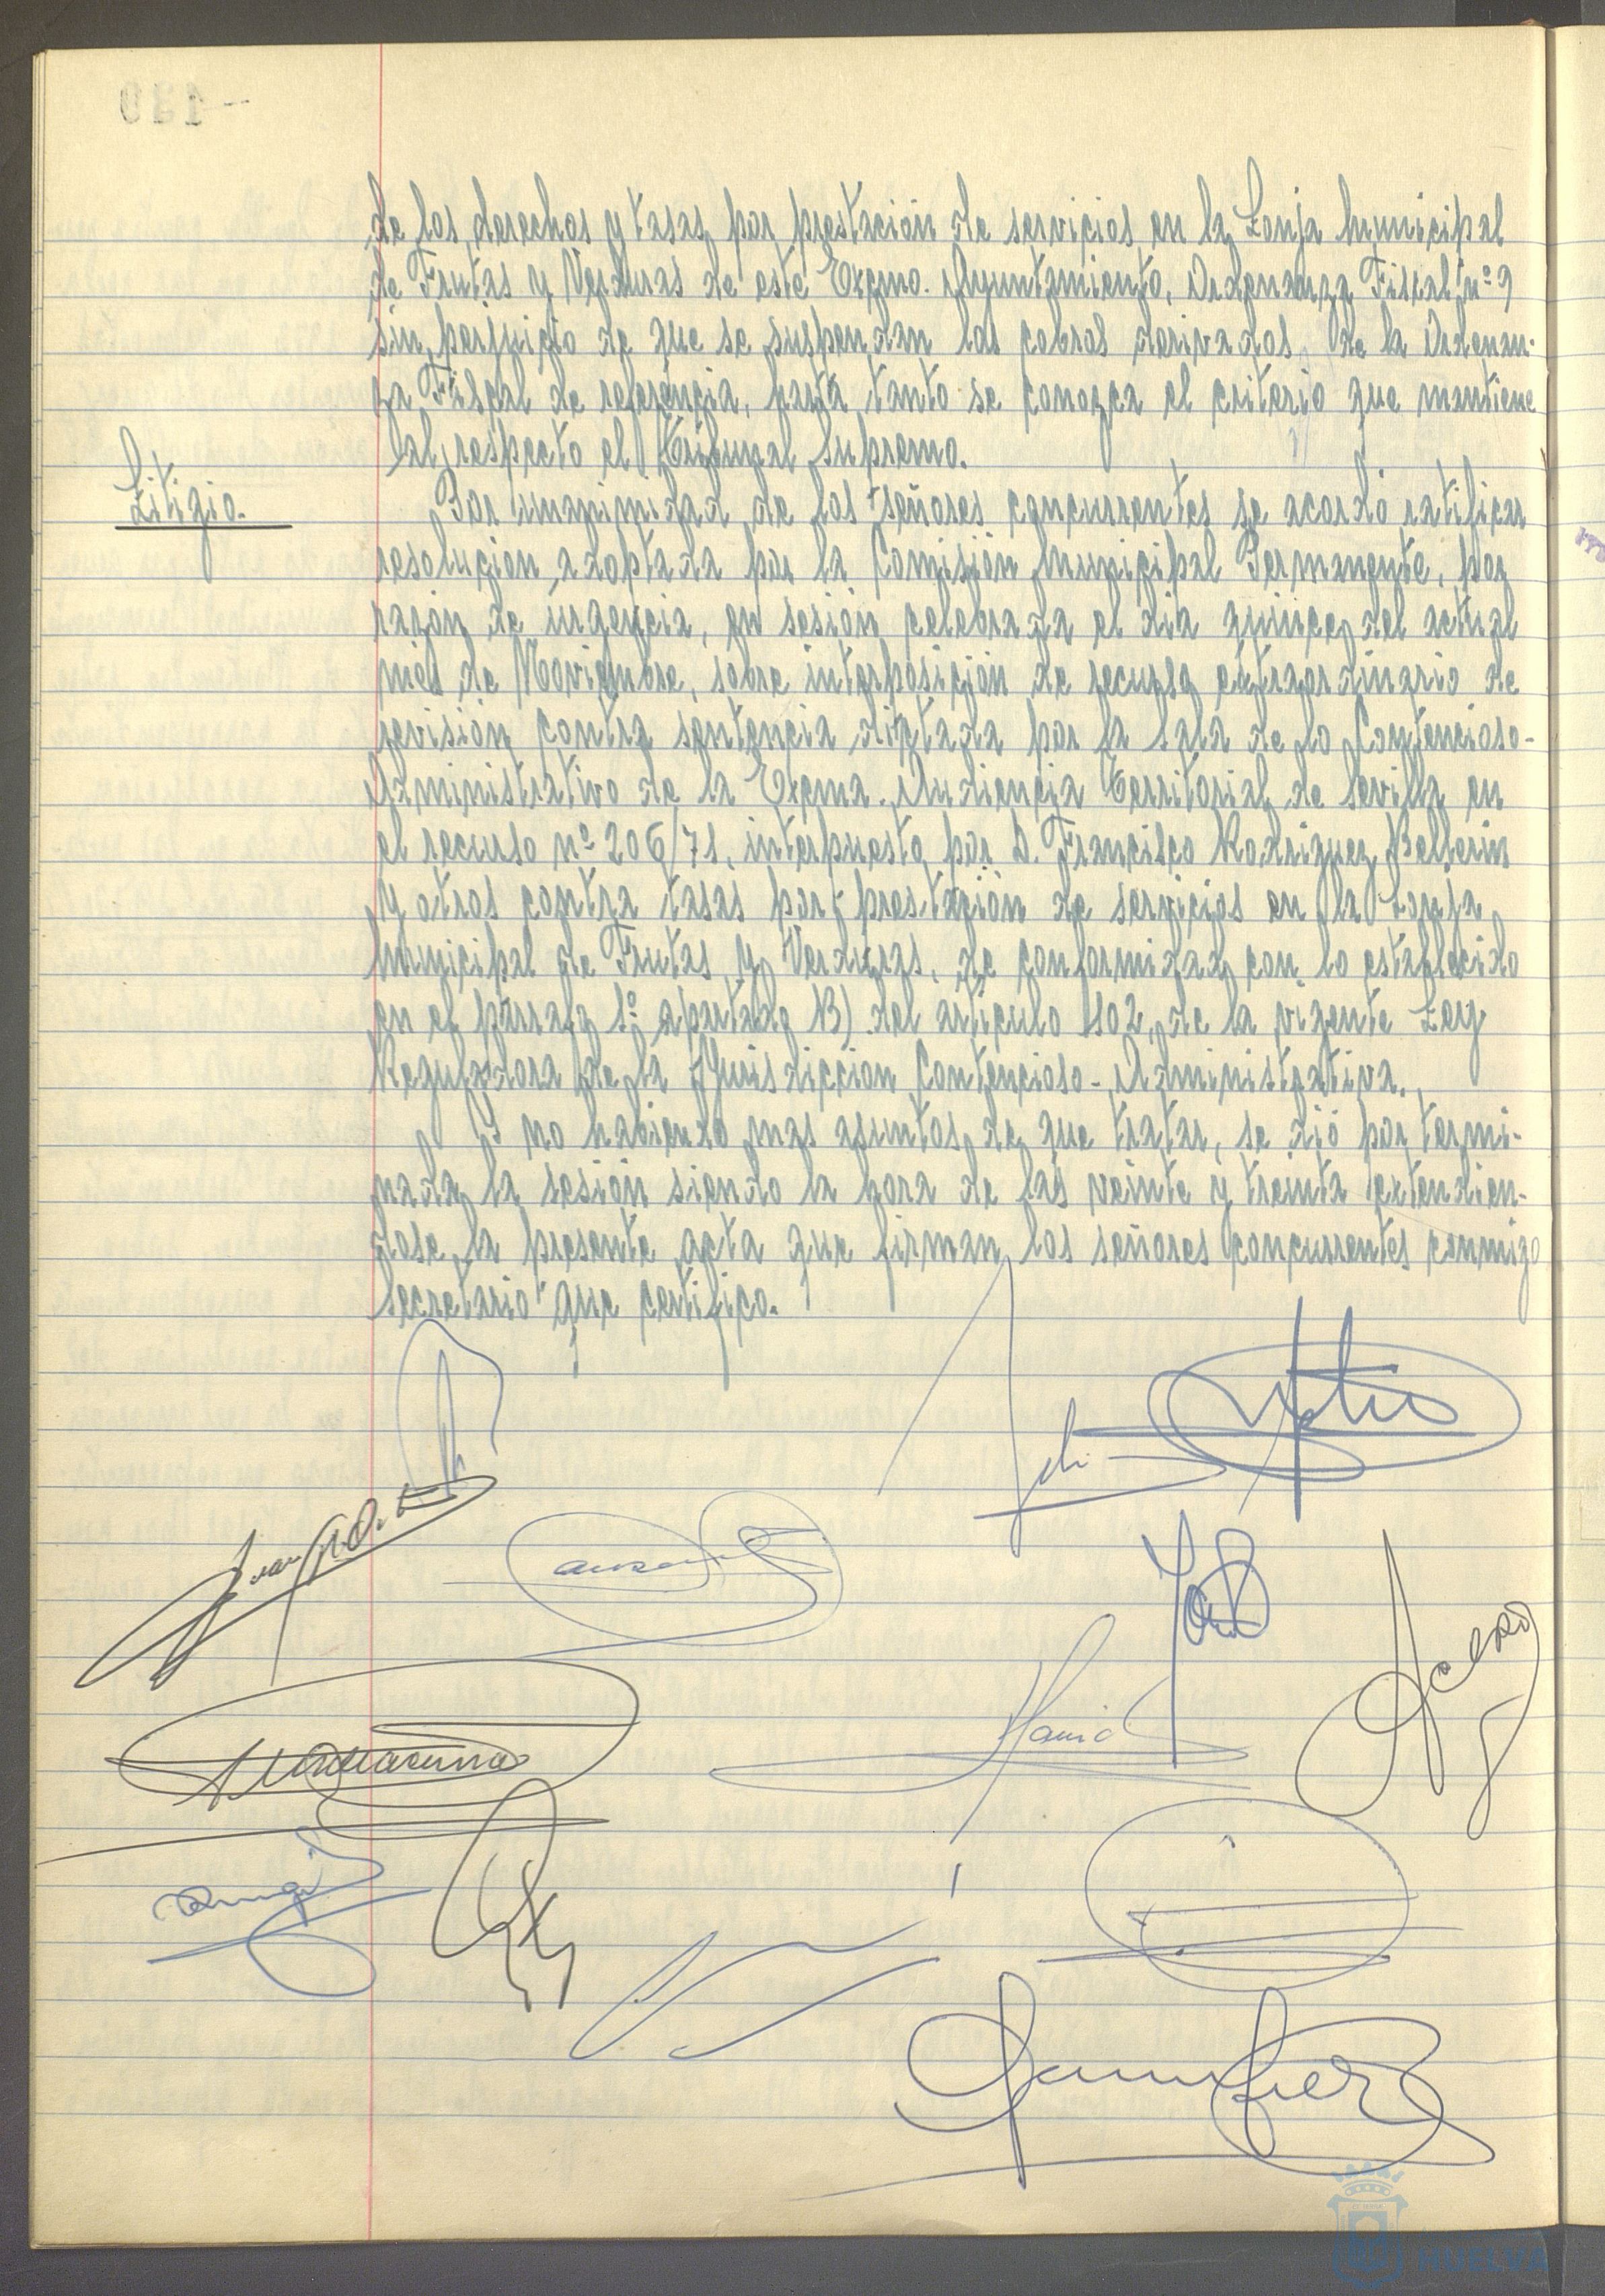 de los derechos y tasas por prestación de servicios en la Lonja Municipal
de Frutas y Verduras de este Excmo. Ayuntamiento, Ordenanza Fiscal nº 9
sin perjuicio de que se suspendan los cobros derivados de la Ordenan-
za Fiscal de referencia, hasta tanto se conozca el criterio que mantiene
al respecto el Tribunal Supremo.
Litigio.
Por unanimidad de los señores concurrentes se acordó ratificar
resolución adoptada por la Comisión Municipal Permanente, por
razón de urgencia, en sesión celebrada el dia quince del actual
mes de Noviembre, sobre interposición de recurso extraordinario de
revisión contra sentencia dictada por la Sala de lo Contencioso-
Administrativo de la Excma. Audiencia Territorial de Sevilla en
el recurso nº 206/71, interpuesto por D. Francisco Rodriguez Bellerin
y otros contra tasas por prestación de servicios en la Lonja
Municipal de Frutas y Verduras, de conformidad con lo establecido
en el párrafo 1º apartado B) del articulo 102 de la vigente Ley
Reguladora de la Jurisdiccion Contencioso-Administrativa.
Y no habiendo mas asuntos de que tratar, se dió por termi-
nada la sesión siendo la hora de las veinte y treinta extendien-
dose la presente acta que firman los señores concurrentes conmigo
Secretario que certifico.
HUELVA